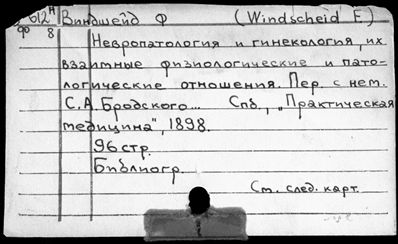 612 н Виндшейд Ф (Windscheid F.)
Ф 8
Невропатология и гинекология, их
взаимные физиологические и пато-
логические отношения. Пер. с нем.
С.А. Бродского... Спб., „Практическая
медицина", 1898.
96 стр.
Библиогр.
См. след. карт.